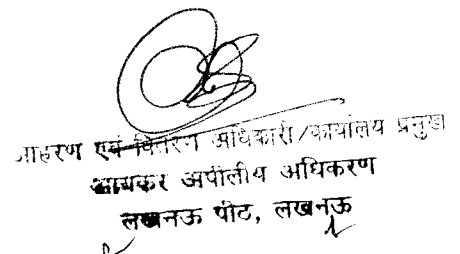 आहरण एवं वितरण अधिकारी/कार्यालय प्रमुख
आयकर अपीलीय अधिकरण
लखनऊ पीठ, लखनऊ